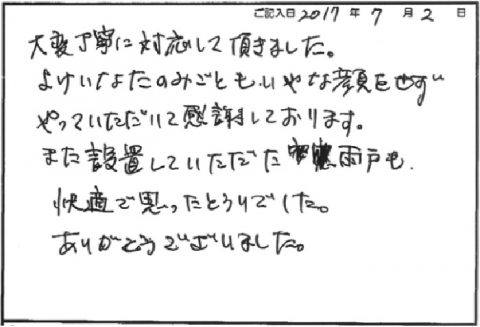 ご記入日 2017 年 7 月 2 日
大変丁寧に対応して頂きました。
よけいなたのみごとも、いやな顔をせず
やっていただいて感謝しております。
また設置していただた 雨戸も、
快適で思ったとうりでした。
ありがとうございました。